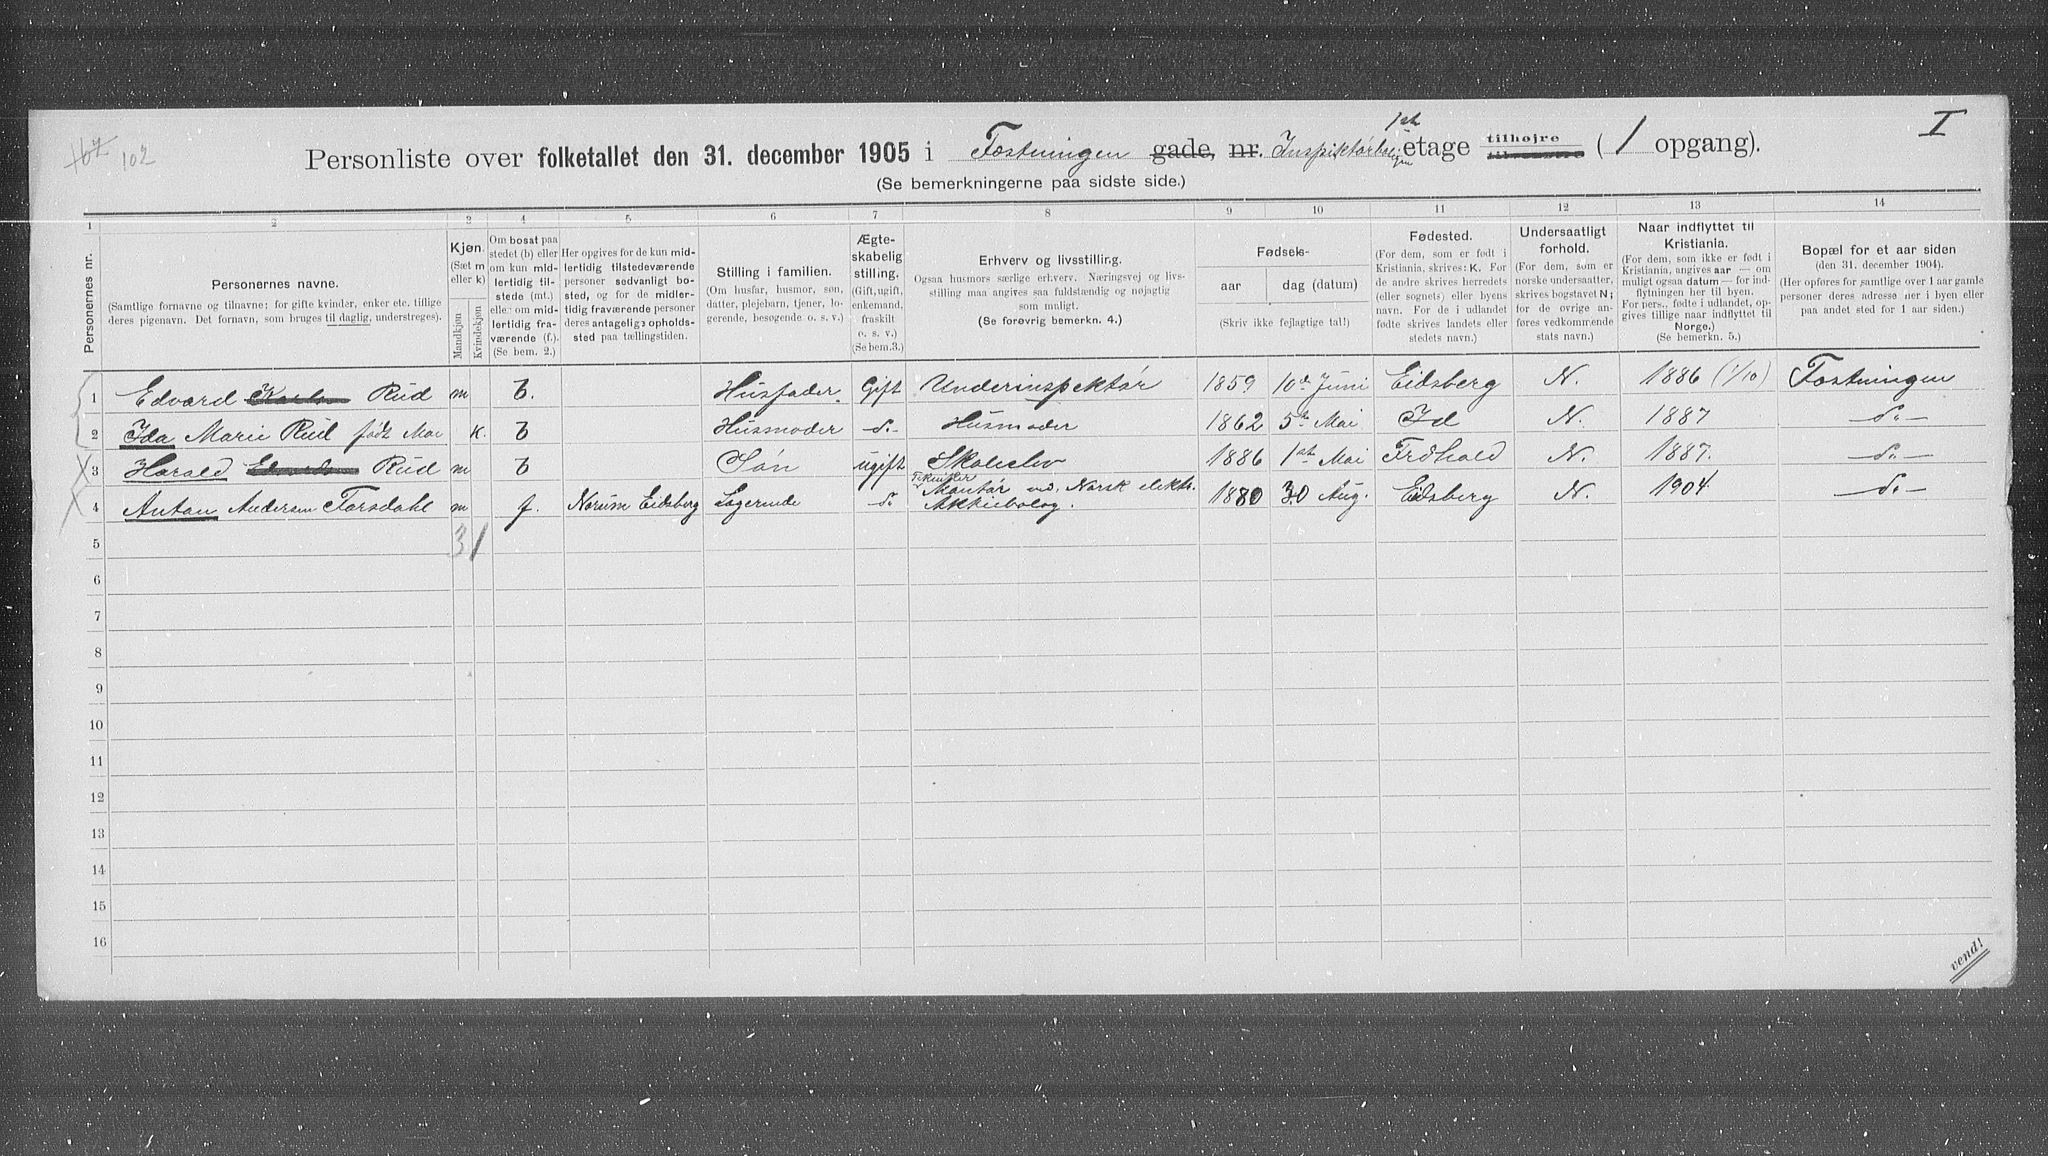 102 102 I
Personliste over folketallet den 31. december 1905 i Fæstningen gade, nr. Inspektørboligen 1ste etage tilhøjre (1 opgang).
(Se bemerkningerne paa sidste side.)
1 2 3 4 5 6 7 8 9 10 11 12 13 14
Personernes nr.
Personernes navne.
(Samtlige fornavne og tilnavne; for gifte kvinder, enker etc. tillige
deres pigenavn. Det fornavn, som bruges til daglig, understreges).
Kjøn.
(Sæt m
eller k)
Mandkjøn
Kvindekjøn
Om bosat paa
stedet (b) eller
om kun mid-
lertidig tilste-
stede (mt.)
eller om mid-
lertidig fra-
værende (f.).
(Se bem. 2.)
Her opgives for de kun mid-
lertidig tilstedeværende
personer sedvanlig bo-
sted, og for de midler-
tidig fraværende personer
deres antagelige opholds-
sted paa tællingstiden.
Stilling i familien.
(Om husfar, husmor, søn,
datter, plejebarn, tjener, lo-
gerende, besøgende o. s. v.)
Ægte-
skabelig
stilling.
(Gift, ugift,
enkemand,
fraskilt
o. s. v.)
(Se bem. 3.)
Erhverv og livsstilling.
Ogsaa husmors særlige erhverv. Næringsvej og livs-
stilling maa angives saa fuldstændig og nøjagtig
som muligt.
(Se forøvrig bemerkn. 4.)
Fødsels-
aar dag (datum)
(Skriv ikke fejlagtige tal!)
Fødested.
(For dem, som er født i
Kristiania, skrives: K. For
de andre skrives herredets
(eller sognets) eller byens
navn. For de i udlandet
fødte skrives landets eller
stedets navn.)
Undersaatligt
forhold.
(For dem, som er
norske undersaatter,
skrives bogstavet N;
for de øvrige an-
føres vedkommende
stats navn.)
Naar indflyttet til
Kristiania.
(For dem, som ikke er født i
Kristiania, angives aar — om
muligt ogsaa datum — for ind-
flytningen her til byen.
For pers., fødte i udlandet, op-
gives tillige naar indflyttet til
Norge.)
(Se bemerkn. 5.)
Bopæl for et aar siden
(den 31. december 1904).
(Her opføres for samtlige over 1 aar gamle
personer deres adresse her i byen eller
paa andet sted for 1 aar siden.)
1 Edvard Karls Rud m b. Husfader. Gift Underinspektør 1859 10de Juni Eidsberg N. 1886 (1/10) Fæstningen
2 Ida Marie Rud født Moe k. b Husmoder do. Husmoder 1862 5te Mai Id N. 1887 do.
3 Harald Edvards Rud m b Søn ugift Skoleelev 1886 1ste Mai Frdhald N. 1887. do.
4 Anton Andersen Forsdahl m f. Norum Eidsberg Logerende do. Tekniker Montør ved Norsk elektr. Aktiebolag. 1880 30 Aug. Eidsberg N. 1904 do.
5 3 1
6
7
8
9
10
11
12
13
14
15
16
vend!